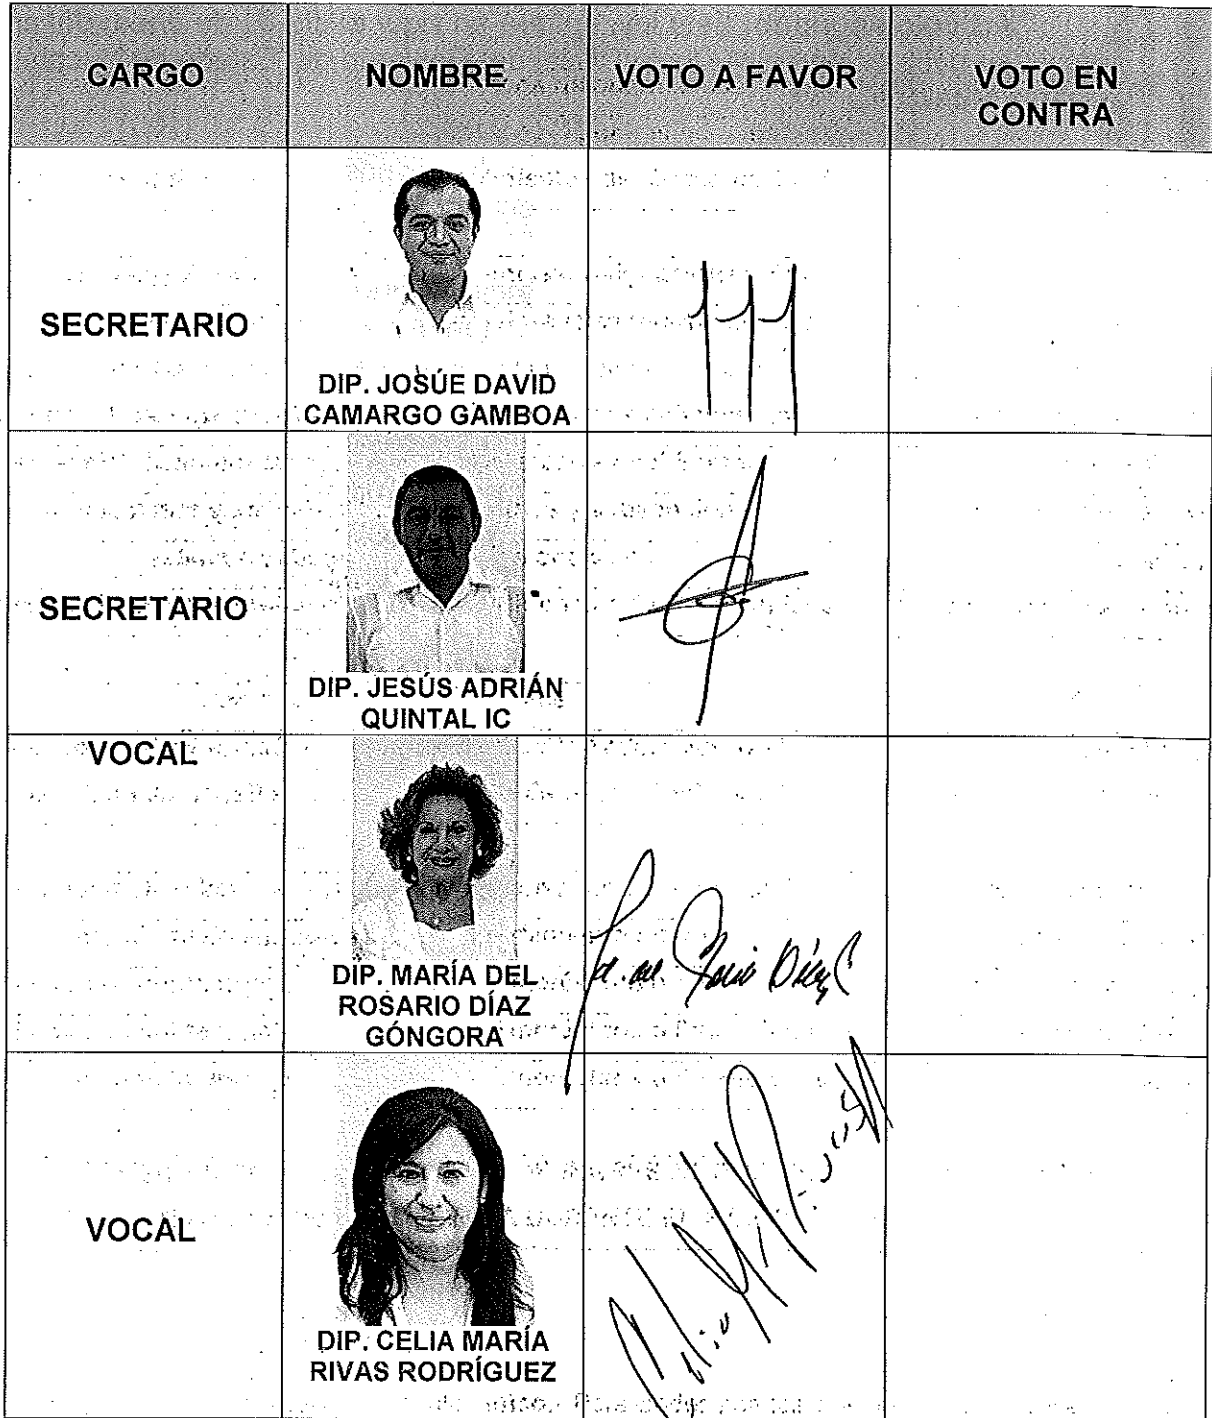 CARGO
NOMBRE
VOTO A FAVOR
VOTO EN
CONTRA
SECRETARIO
DIP. JOSÚE DAVID
CAMARGO GAMBOA
SECRETARIO
DIP. JESÚS ADRIÁN
QUINTAL IC
VOCAL
DIP. MARÍA DEL
ROSARIO DÍAZ
GÓNGORA
VOCAL
DIP. CELIA MARÍA
RIVAS RODRÍGUEZ